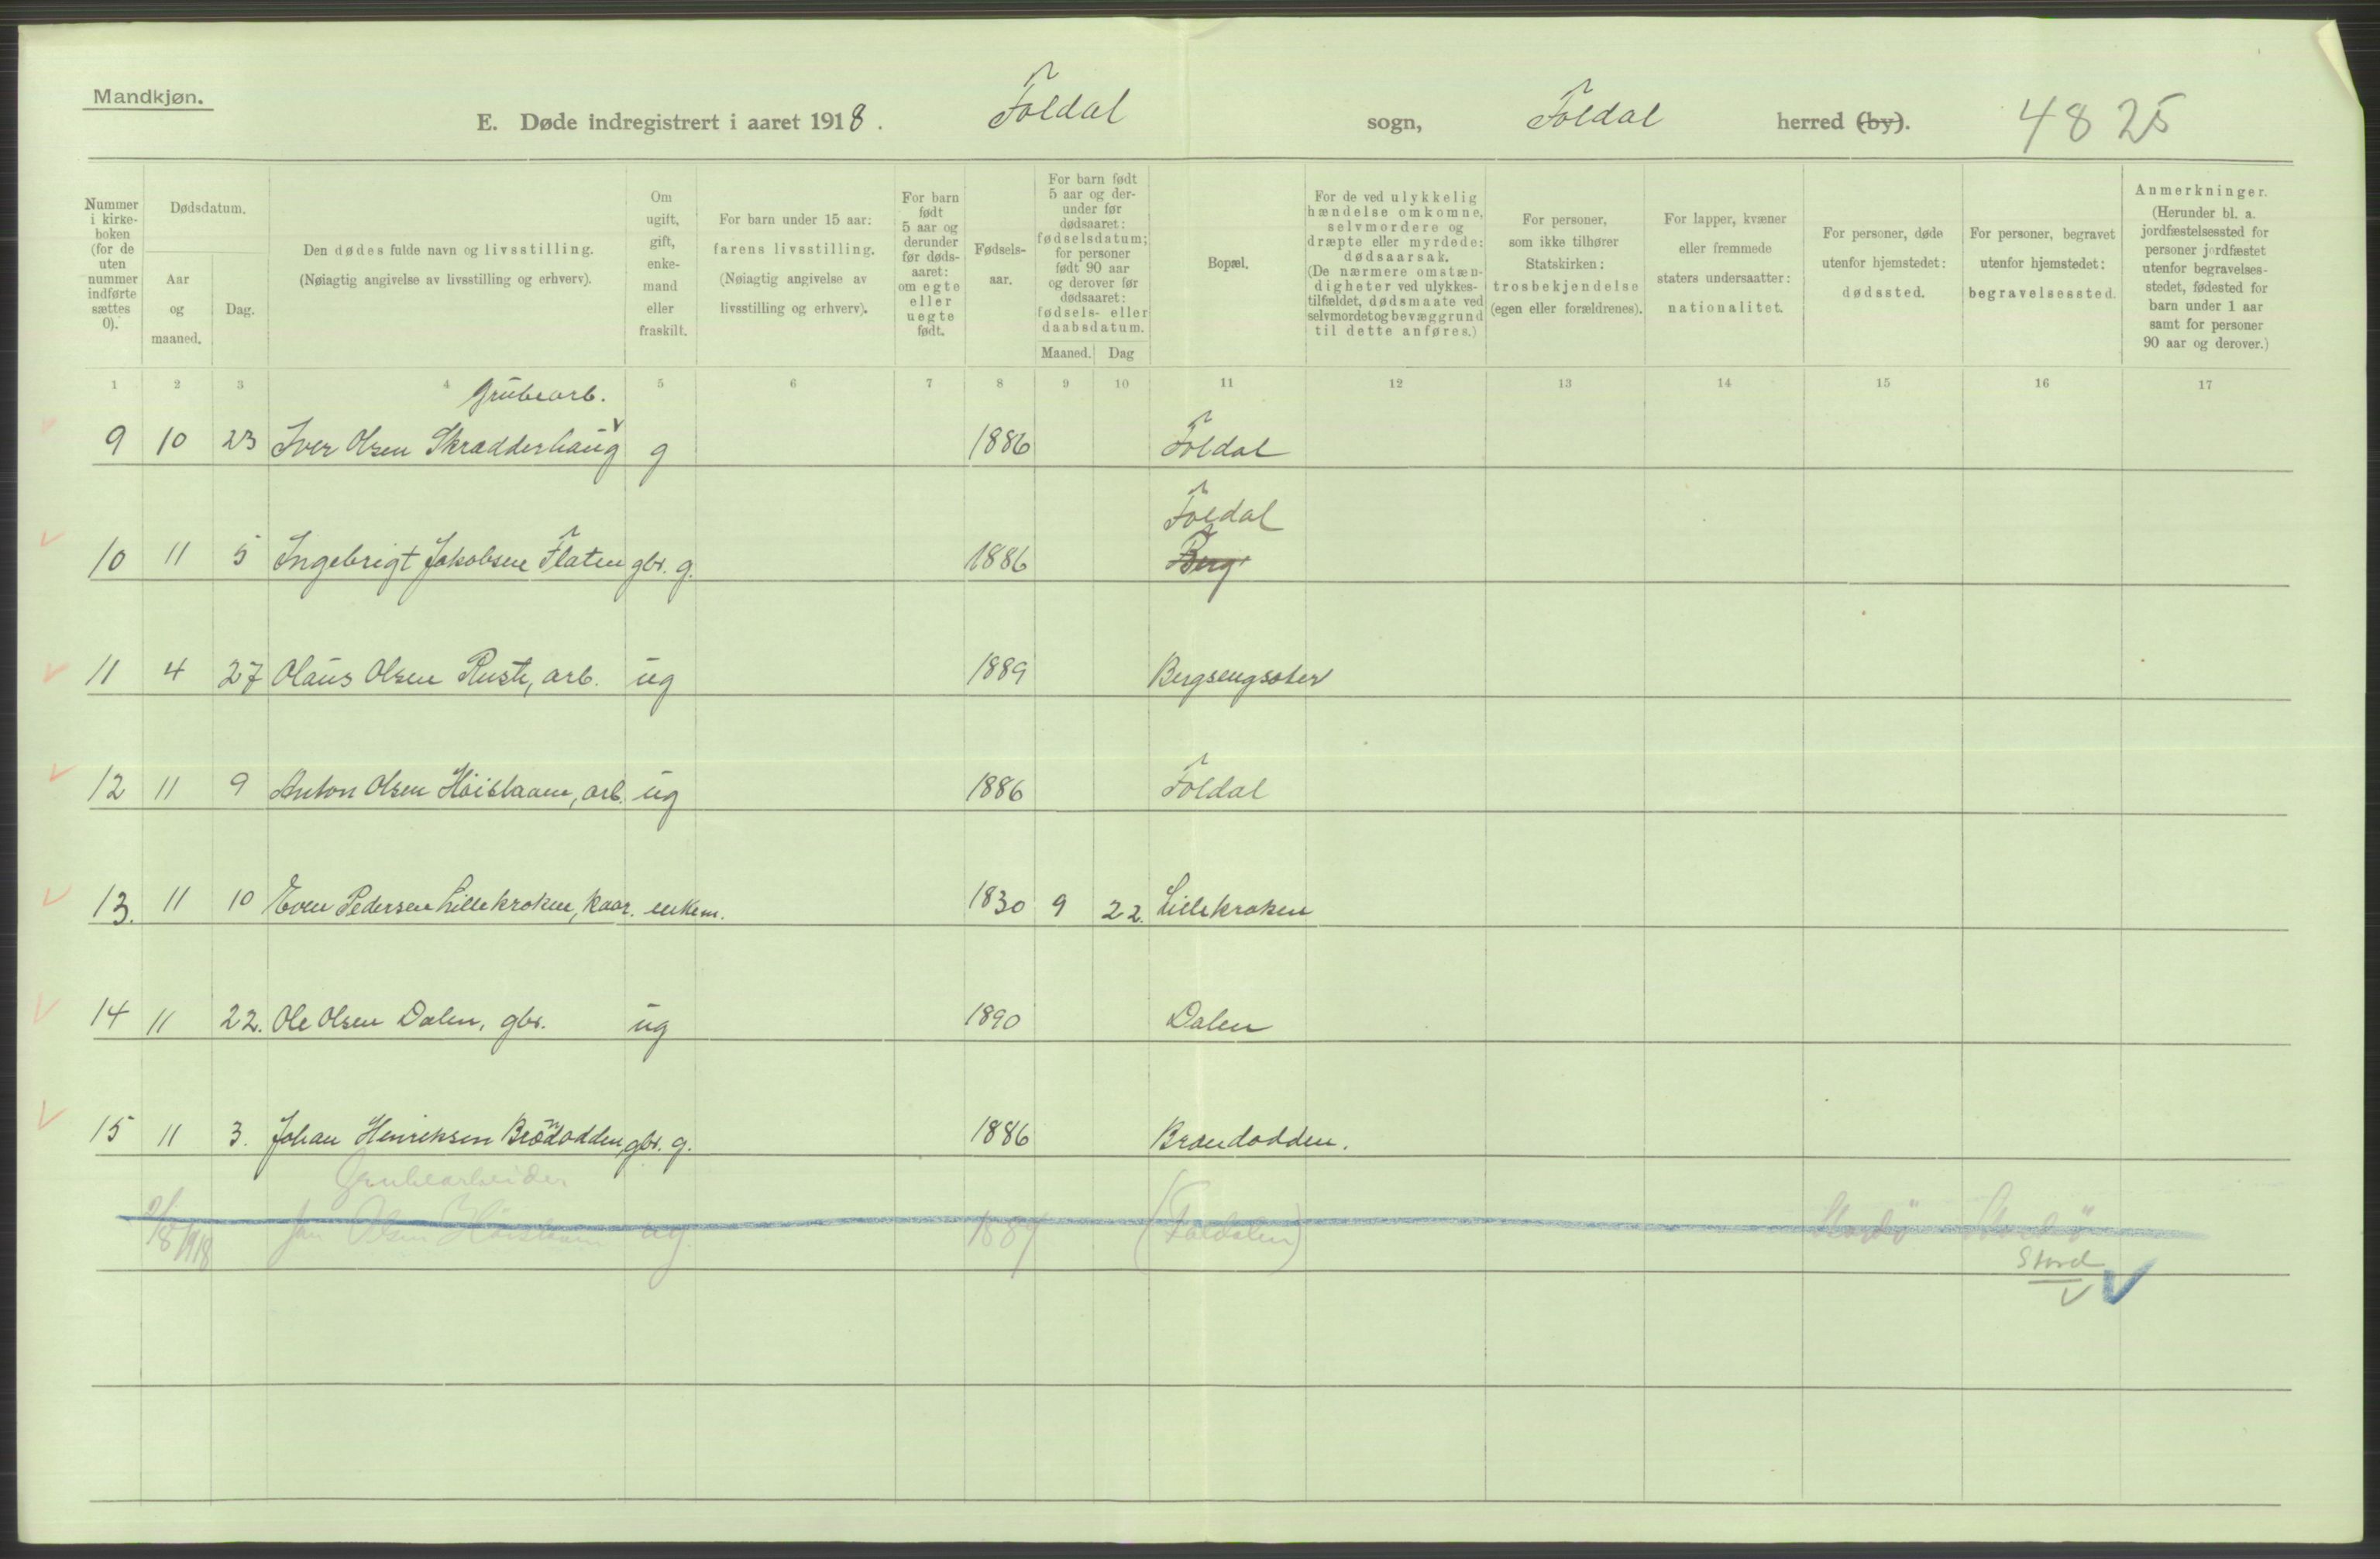 Mandkjøn.
E. Døde indregistrert i aaret 1918. Foldal sogn, Foldal herred (by). 48 25
Nummer i kirke-boken (for de uten nummer indførte sættes 0).
Dødsdatum.
Aar og maaned.
Dag.
Den dødes fulde navn og livsstilling.
(Nøiagtig angivelse av livsstilling og erhverv).
Om ugift, gift, enke-mand eller fraskilt.
For barn under 15 aar:
farens livsstilling.
(Nøiagtig angivelse av
livsstilling og erhverv).
For barn født 5 aar og derunder før døds-aaret: om egte eller uegte født.
Fødsels-aar.
For barn født 5 aar og der-under før dødsaaret: fødselsdatum; for personer født 90 aar og derover før dødsaaret: fødsels- eller daabsdatum.
Maaned. Dag
Bopæl.
For de ved ulykkelig hændelse omkomne, selvmordere og dræpte eller myrdede: dødsaarsak.
(De nærmere omstæn-digheter ved ulykkes-tilfældet, dødsmaate ved selvmordet og bevæggrund til dette anføres.)
For personer, som ikke tilhører Statskirken: trosbekjendelse (egen eller forældrenes).
For lapper, kvæner eller fremmede staters undersaatter: nationalitet.
For personer, døde utenfor hjemstedet: dødssted.
For personer, begravet utenfor hjemstedet: begravelsessted.
Anmerkninger.
(Herunder bl. a. jordfæstelsessted for personer jordfæstet utenfor begravelses-stedet, fødested for barn under 1 aar samt for personer 90 aar og derover.)
1 2 3 4 5 6 7 8 9 10 11 12 13 14 15 16 17
Grubearb.
9 10 23 Iver Olsen Skradderhaug g 1886 Foldal
Foldal
10 11 5 Ingebrigt Jakobsen Flaten gbr. g. 1886 Berg
11 4 27 Olaus Olsen Ruste, arb. ug 1889 Bergsengsæter
12 11 9 Anton Olsen Høistaaen, arb. ug 1886 Foldal
13. 11 10 Even Pedersen Lillekroken, kaar. enkem. 1830 9 22. Lillekroken
14 11 22. Ole Olsen Dalen, gbr. ug 1890 Dalen
15 11 3. Johan Henriksen Brændodden gbr. g. 1886 Brændodden.
Grubearbeider
1918 Olsen ug. 1887 (Foldalen) Stordö Stordö
Stord